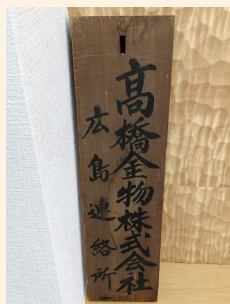 髙橋金物株式会社
広島連絡所